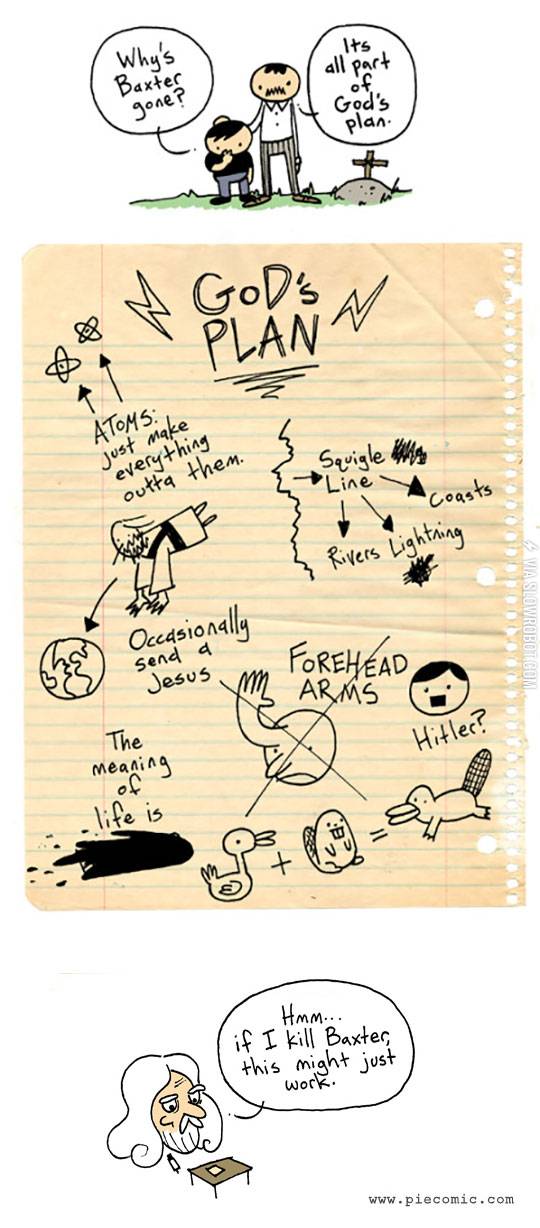 Why's
Baxter
gone?
Its
all part
of
God's
plan.
GOD's
PLAN
ATOMS:
just make
everything
outta them.
Squigle
Line
Coasts
Rivers
Lightning
Occasionally
send a
Jesus
FOREHEAD
ARMS
Hitler?
The
meaning
of
life is
+
=
Hmm...
if I kill Baxter,
this might just
work.
VIA SLOWROBOT.COM
www.piecomic.com